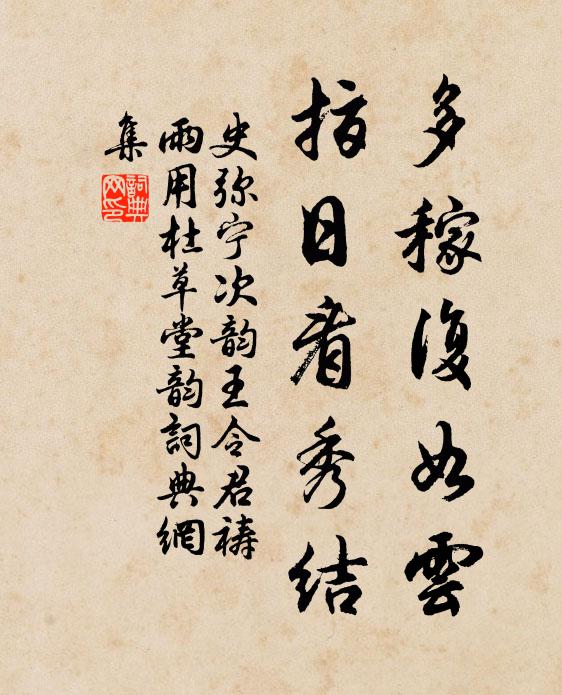 多稼復如雲
指日看秀结
史弥宁次韵王令君祷
雨用杜草堂韵詞典網
集
詞典网印